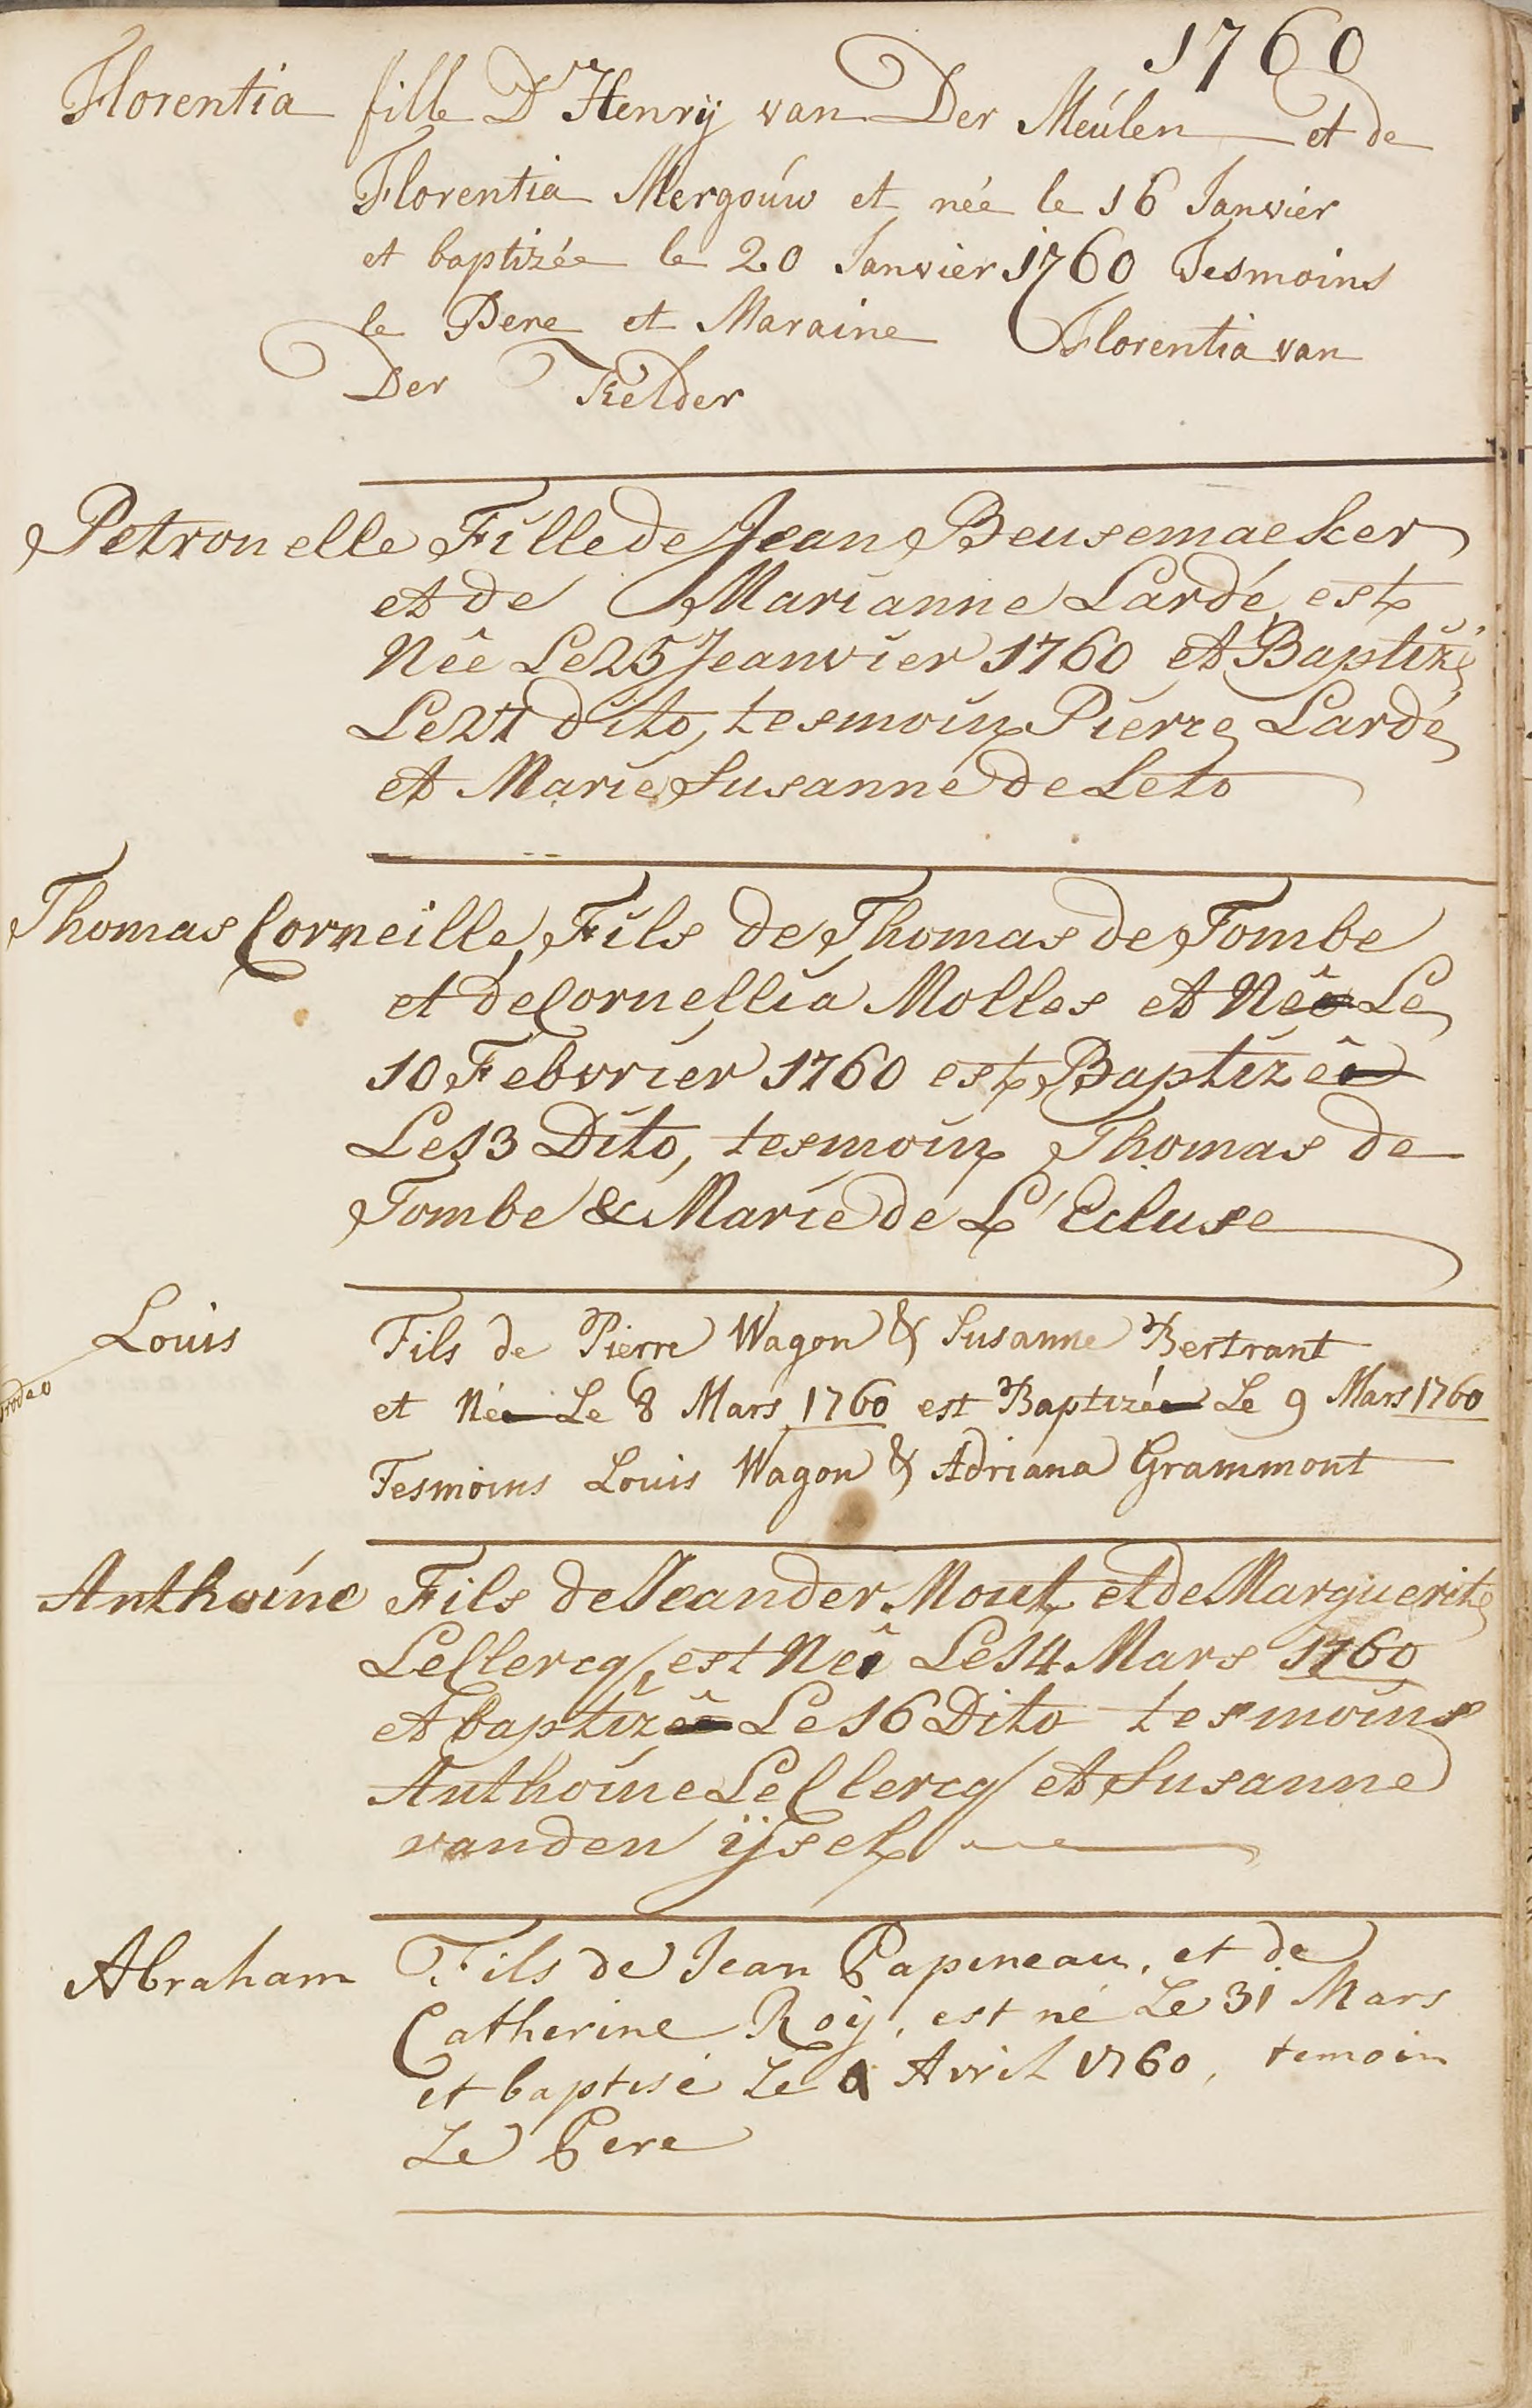 1760
Florentia fille D'Henrij van Der Meúlen et de
Florentia Mergoúw et née le 16 Janvier
et baptizée le 20 Janvier 1760 Tesmoins
le Pere et Maraine Florentia van
Der Kelder
Petronelle Fille de Jean Beusemaeker
et de Marianne Lardé est
Née Le 25 Jeanvier 1760 et Baptizé
Le 27 dito, tesmoin Pierre Lardé
et Marie Susanne de Leto
Thomas Corneille, Fils de Thomas de Tombe
et de Cornellia Molles et Né Le
10 Febvrier 1760 est Baptizé
Le 13 Dito, tesmoin Thomas de
Tombe & Marie de L'Ecluse
Louis Fils de Pierre Wagon & Susanne Bertrant
et Né Le 8 Mars 1760 est Baptizé Le 9 Mars 1760
Tesmoins Louis Wagon & Adriana Grammont
Anthoine Fils de Jean der Mout et de Marguerite
LeClercq, est Né Le 14 Mars 1760
et baptizé Le 16 Dito tesmoins
Anthoine LeClercq et Susanne
vanden ijsel
Abraham Fils de Jean Papineau, et de
Catherine Roÿ, est né Le 31 Mars
et baptisé Le Avril 1760, temoin
Le Pere